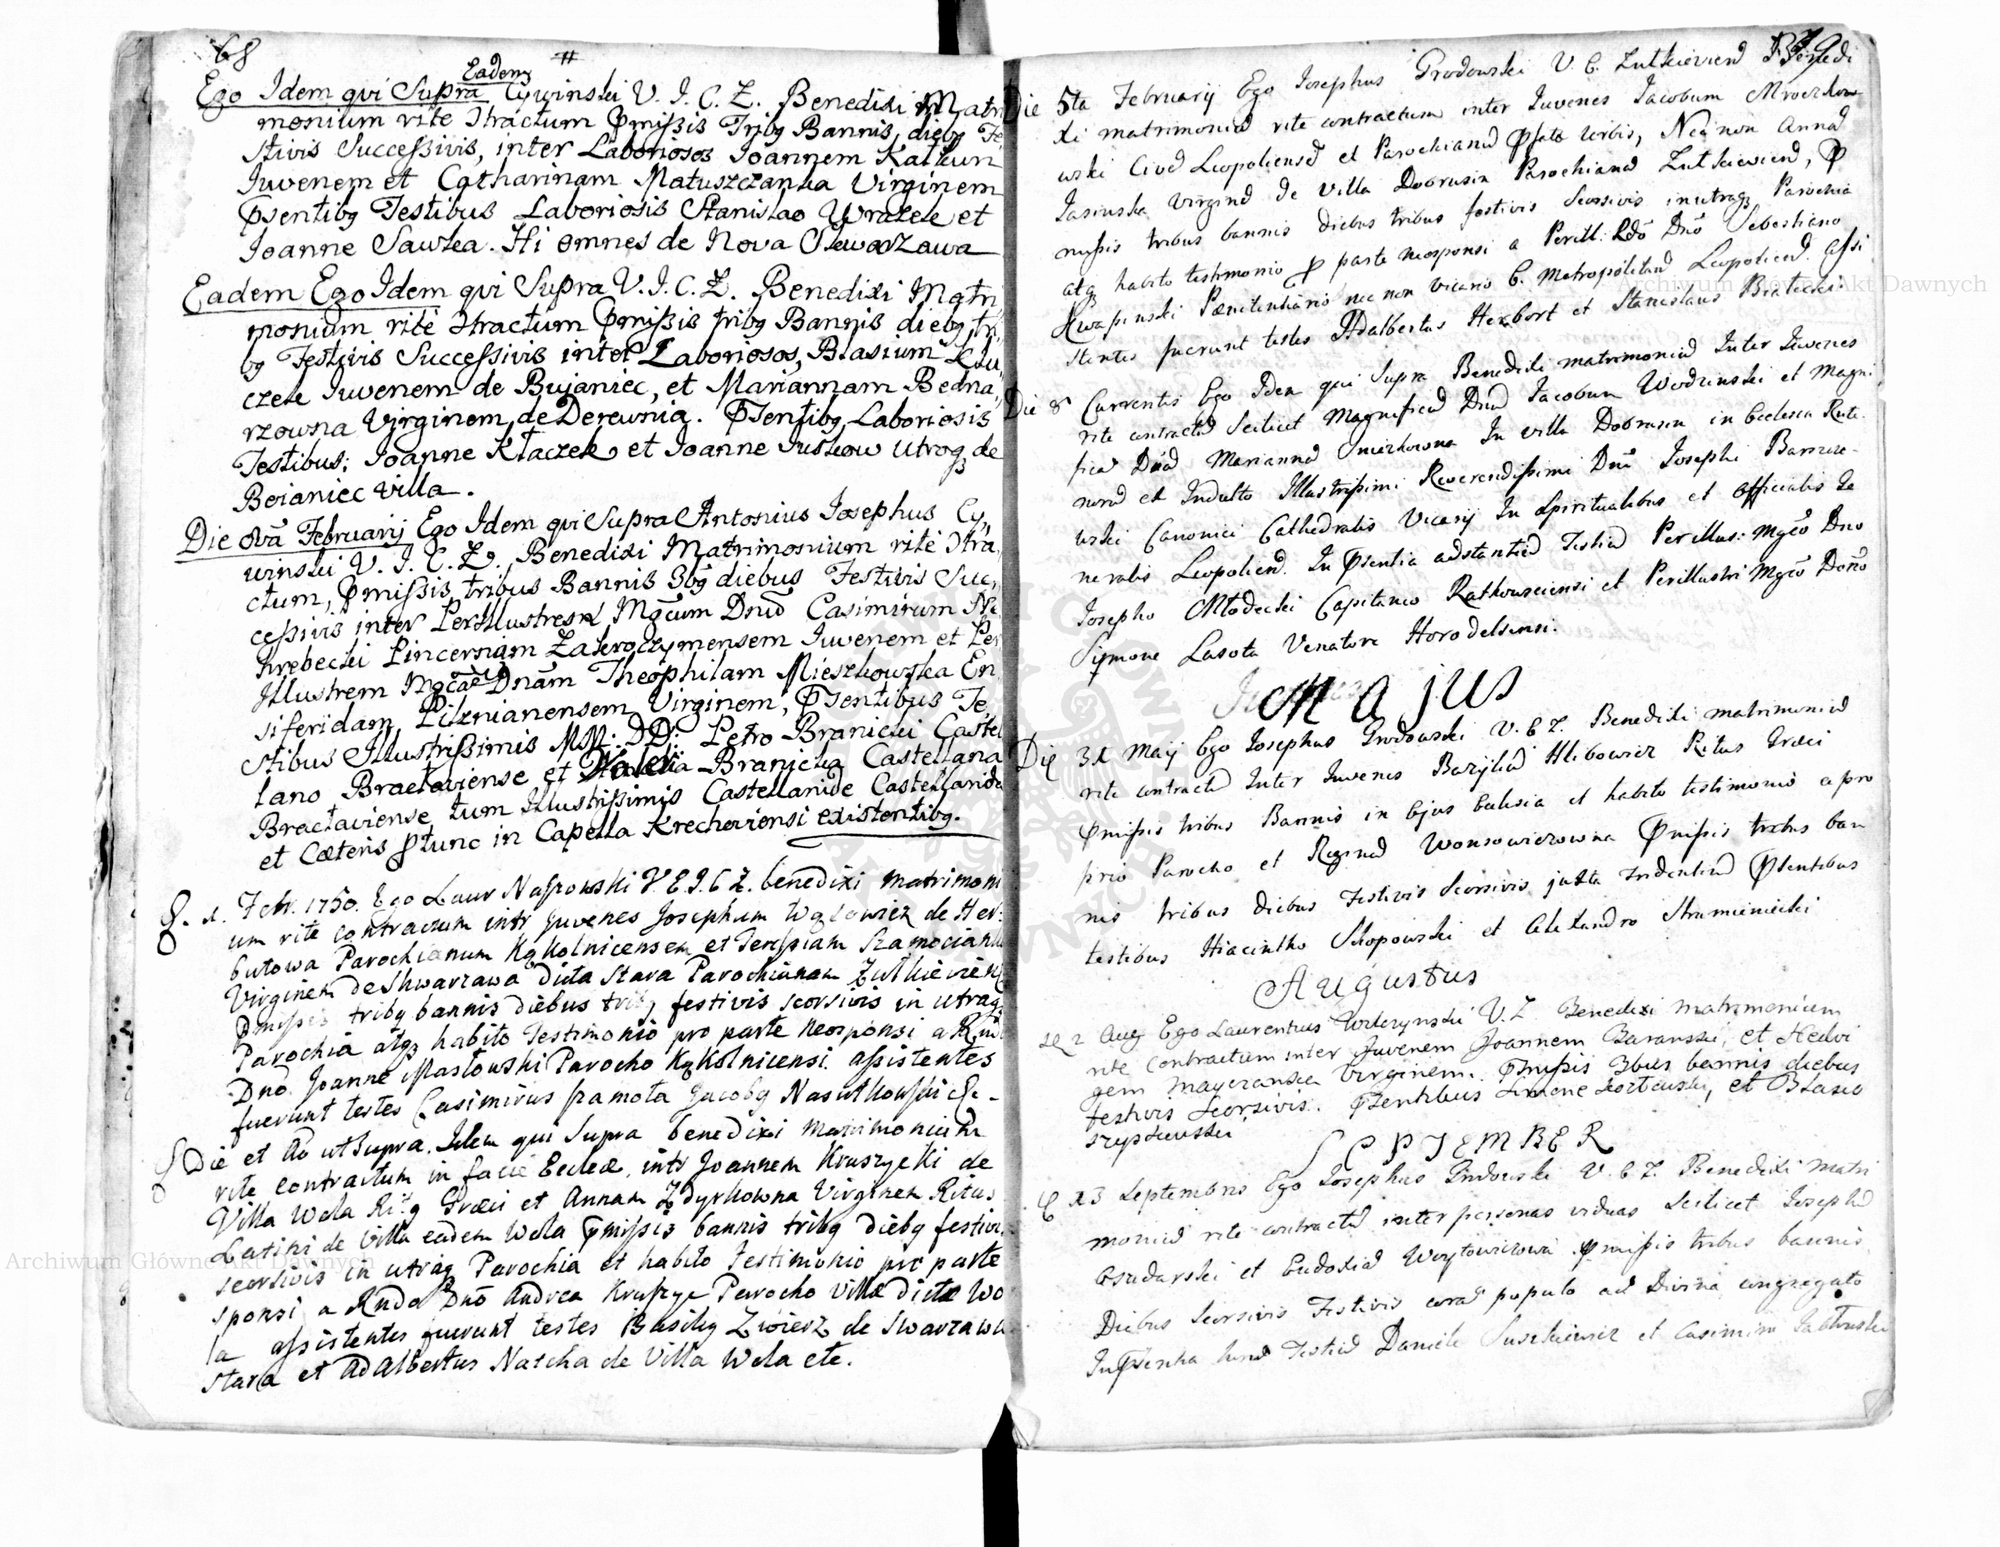 68
#
Eadem
Ego Idem qui Supra Cywinski V. I. C. Z. Benedixi Matri
monium rite Structum Pmissis Tribg Bannis, diebg Fe
stivis Successivis, inter Laboriosos Joannem Kathun
Iuvenem et Catharinam Matuszczanka Virginem
Psentibg Testibus Laboriosis Stanislao Wrazek et
Joanne Sawka. Hi omnes de Nova Skwarzawa
Eadem Ego Idem qui Supra V. I. C. Z. Benedixi Matri
monium rite Structum Pmissis tribg Bannis diebg tri
bg Festivis Successivis inter Laboriosos, Blasium Klu
czek Iuvenem de Bujaniec, et Mariannam Bedna
rzowna Virginem, de Derewnia. PSentibg Laboriosis
Testibus; Joanne Kłaczek et Joanne Juskow utrog3 de
Boianiec Villa.
Die 8va Februarij Ego Idem qui Supra Antonius Josephus Cy
winski V. I. C. Z. Benedixi Matrimonium rite Stra
ctum, Pmissis tribus Bannis 3bg diebus Festivis Suc
cessivis inter PerIllustrem Mgcum Dnum Casimirum
hrebecki Pincernam Zakroczymensem Iuvenem et Per
Illustrem Mgcam Dnam Theophilam Mieszkowska En
siferidam Pilznianensem Virginem, PSentibus Te
stibus Illustrissimis MM: DD: Petro Branicki Castel
lano Bractaviense et Valeria Branicka Castellana
Bractaviense tum Illustrissimis Castellanide Castellanide
et Cæteris Ptunc in Capella Krechoviensi existentibg.
8. x. Febr. 1750. Ego Laur Naprowski V E I C Z. benedixi matrimoni
um rite contractum intr Juvenes Josephum Wąsowicz de Her
butowa Parochianum Kąkolnicensem et Teressiam Szamocianka
Virginem de Skwarzawa dicta Stara Parochianam Zulkieviens
Pmissis tribg bannis diebus trib, festivis seorsivis in utraq3
Parochia atq3 habito Testimonio pro parte neosponsi a Rndo
Dno Joanne Masłowski Parocho Kąkolnicensi. assistentes
fuerunt testes Casimirus framota Jacobg Nasutkowski &c.
Die et Ao ut Supra. Idem qui Supra benedixi Matrimonium
rite contractum in facie Eccleæ, intr Joannem Kruszycki de
Villa Wola Ritg Græci et Annam Zdyrkowna Virginem Ritus
Latini de Villa eadem Wola Pmissis bannis tribg diebg festivis
seorsivis in utraq Parochia et habito Testimonio pro parte
sponsi a Rndo Dno Andrea Kruszyc Parocho Villæ dictæ Wo
la assistentes fuerunt testes Basilig Zwierz de Swarzawa
Stara et Adalbertus Natcha de Villa Wola etc.
Die 5ta Februarij Ego Josephus Grodowski V. C. Zulkieviens Benedi
xi matrimonium rite contractum inter Iuvenes Jacobum Mroczkow
wski Civem Leopoliensem et Parochianum Pfatæ Urbis, Necnon Annam
Jasinska Virginem de Villa Dobrusin Parochianam Zulkieviens, P
missis tribus bannis diebus tribus festivis Seorsivis inutraq3 Parochia
atq3 habito testimonio P parte neosponsi a Perill: Rdo Dno Sebastiano
Kwapinski Pœnitentiario nec non Vicario E. Metropolitanæ Leopolien. Assi
stentes fuerunt testes Adalbertus Herbort et Stanislaus Bratecki
Die 8 Currentis Ego Idem qui Supra Benedixi matrimonium Inter Iuvenes
rite contractum Scilicet Magnificum Dnum Jacobum Wodzinski et Magni
ficam Dnam Mariannam In Villa Dobrusin in Ecclesia Rute
norum et Indulto Illustrissimi Reverendissimi Dni Josephi
wski Canonici Cathedralis Vicarij In Spiritualibus et Officialis Ge
neralis Leopolien. In Psentia adstantium Testium Perillus: Mgco Dno
Josepho Młodecki Capitaneo et Perillustri Mgco Domo
Symone Lasota Venatore Horodelsensi.
Majus
Die 31 Maij Ego Josephus Grodowski V. E Z. Benedixi matrimonium
rite contractum Inter Iuvenes Bazylium Hlibowicz Ritus Græci
Pmissis tribus Bannis in Ejus Eclesia et habito testimonio a pro
prio Parocho et Reginam Wonsowiczowna Pmissis tribus ban
nis tribus diebus Festivis Seorsivis juxta Tridentinum Psentibus
testibus Hiacintho Sklopowski et Alexandro Strumieniecki
Augustus
2 Aug Ego Laurentius V. Z. Benedixi Matrimonium
rite contractum inter Juvenem Joannem Baranski, et Hedvi
gem Mayeranska Virginem. Pmissis 3bus bannis diebus
festivis Seorsivis. PSentibus Simone et Blasio
SEPTEMBER
23 Septembris Ego Josephus Grodowski V. E Z. Benedixi Matri
monium rite contractum inter personas viduas Scilicet Josephum
Gsudarski et Eudoxiam Woytowiczowa Pmissis tribus bannis
Diebus Seorsivis Festivis coram populo ad Divina congregato
InPsentia Testium Daniele Suszkiewicz et Casimiro
Archiwum Główne Akt Dawnych
Archiwum Główne Akt Dawnych